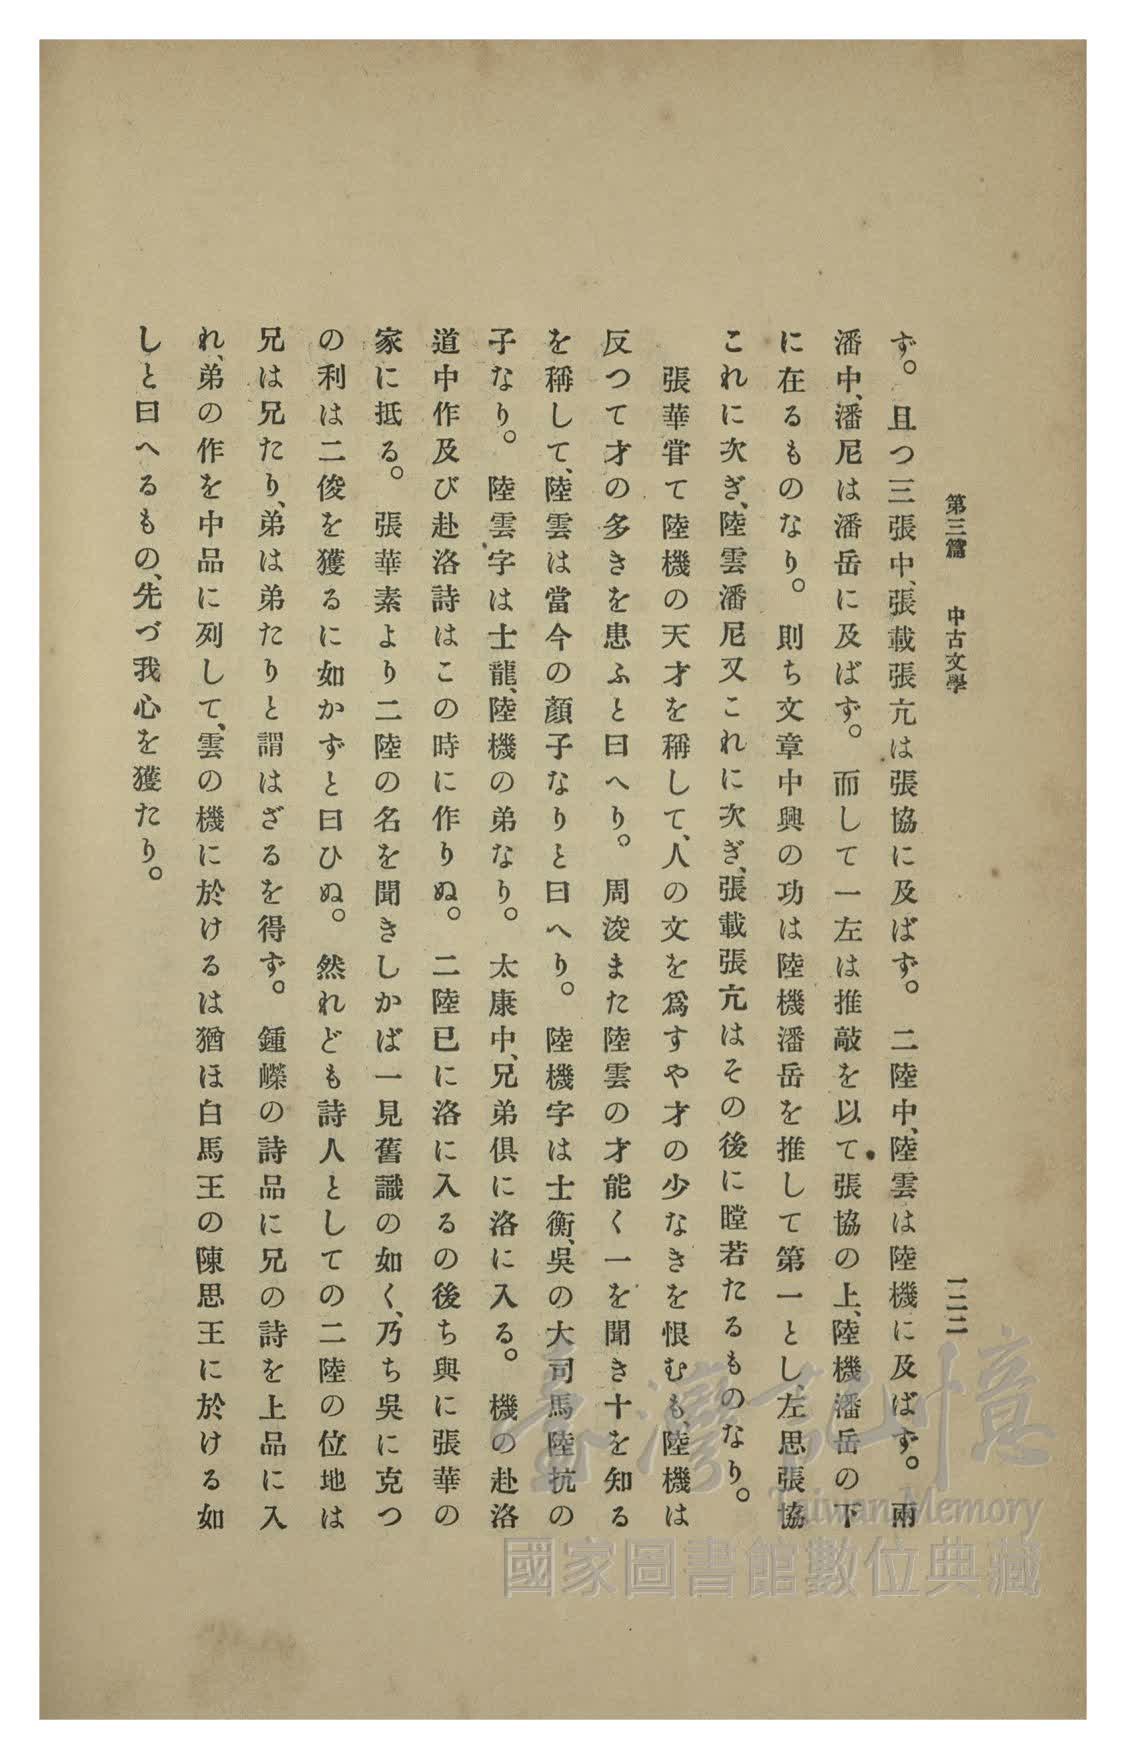 第三篇　中古文學
一二二
ず。且つ三張中、張載張亢は張協に及ばず。二陸中、陸雲は陸機に及ばず。兩
潘中、潘尼は潘岳に及ばず。而して一左は推敲を以て張協の上、陸機潘岳の下
に在るものなり。則ち文章中興の功は陸機潘岳を推して第一とし、左思張協
これに次ぎ、陸雲潘尼又これに次ぎ、張載張亢はその後に瞠若たるものなり。
張華甞て陸機の天才を稱して、人の文を爲すや才の少なきを恨むも、陸機は
反つて才の多きを患ふと曰へり。周浚また陸雲の才能く一を聞き十を知る
を稱して、陸雲は當今の顏子なりと曰へり。陸機字は士衡、吳の大司馬陸抗の
子なり。陸雲字は士龍、陸機の弟なり。太康中、兄弟俱に洛に入る。機の赴洛
道中作及び赴洛詩はこの時に作りぬ。二陸已に洛に入るの後ち與に張華の
家に抵る。張華素より二陸の名を聞きしかば一見舊識の如く、乃ち吳に克つ
の利は二俊を獲るに如かずと曰ひぬ。然れども詩人としての二陸の位地は
兄は兄たり、弟は弟たりと謂はざるを得ず。鍾嶸の詩品に兄の詩を上品に入
れ、弟の作を中品に列して、雲の機に於けるは猶ほ白馬王の陳思王に於ける如
しと曰へるもの、先づ我心を獲たり。
臺灣記憶
Taiwan Memory
國家圖書館數位典藏